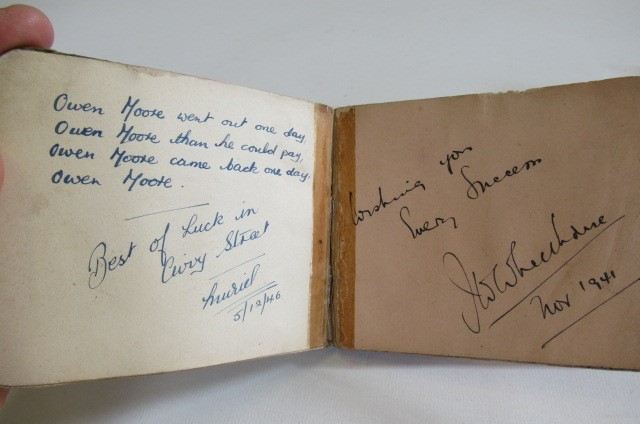 Owen Moore went out one day,
Owen Moore than he could pay,
Owen Moore came back one day.
Owen Moore.
Best of Luck in
Civvy Street
Muriel
5/12/46
Wishing you
Every Success
J W Wheelhouse
Nov 1941